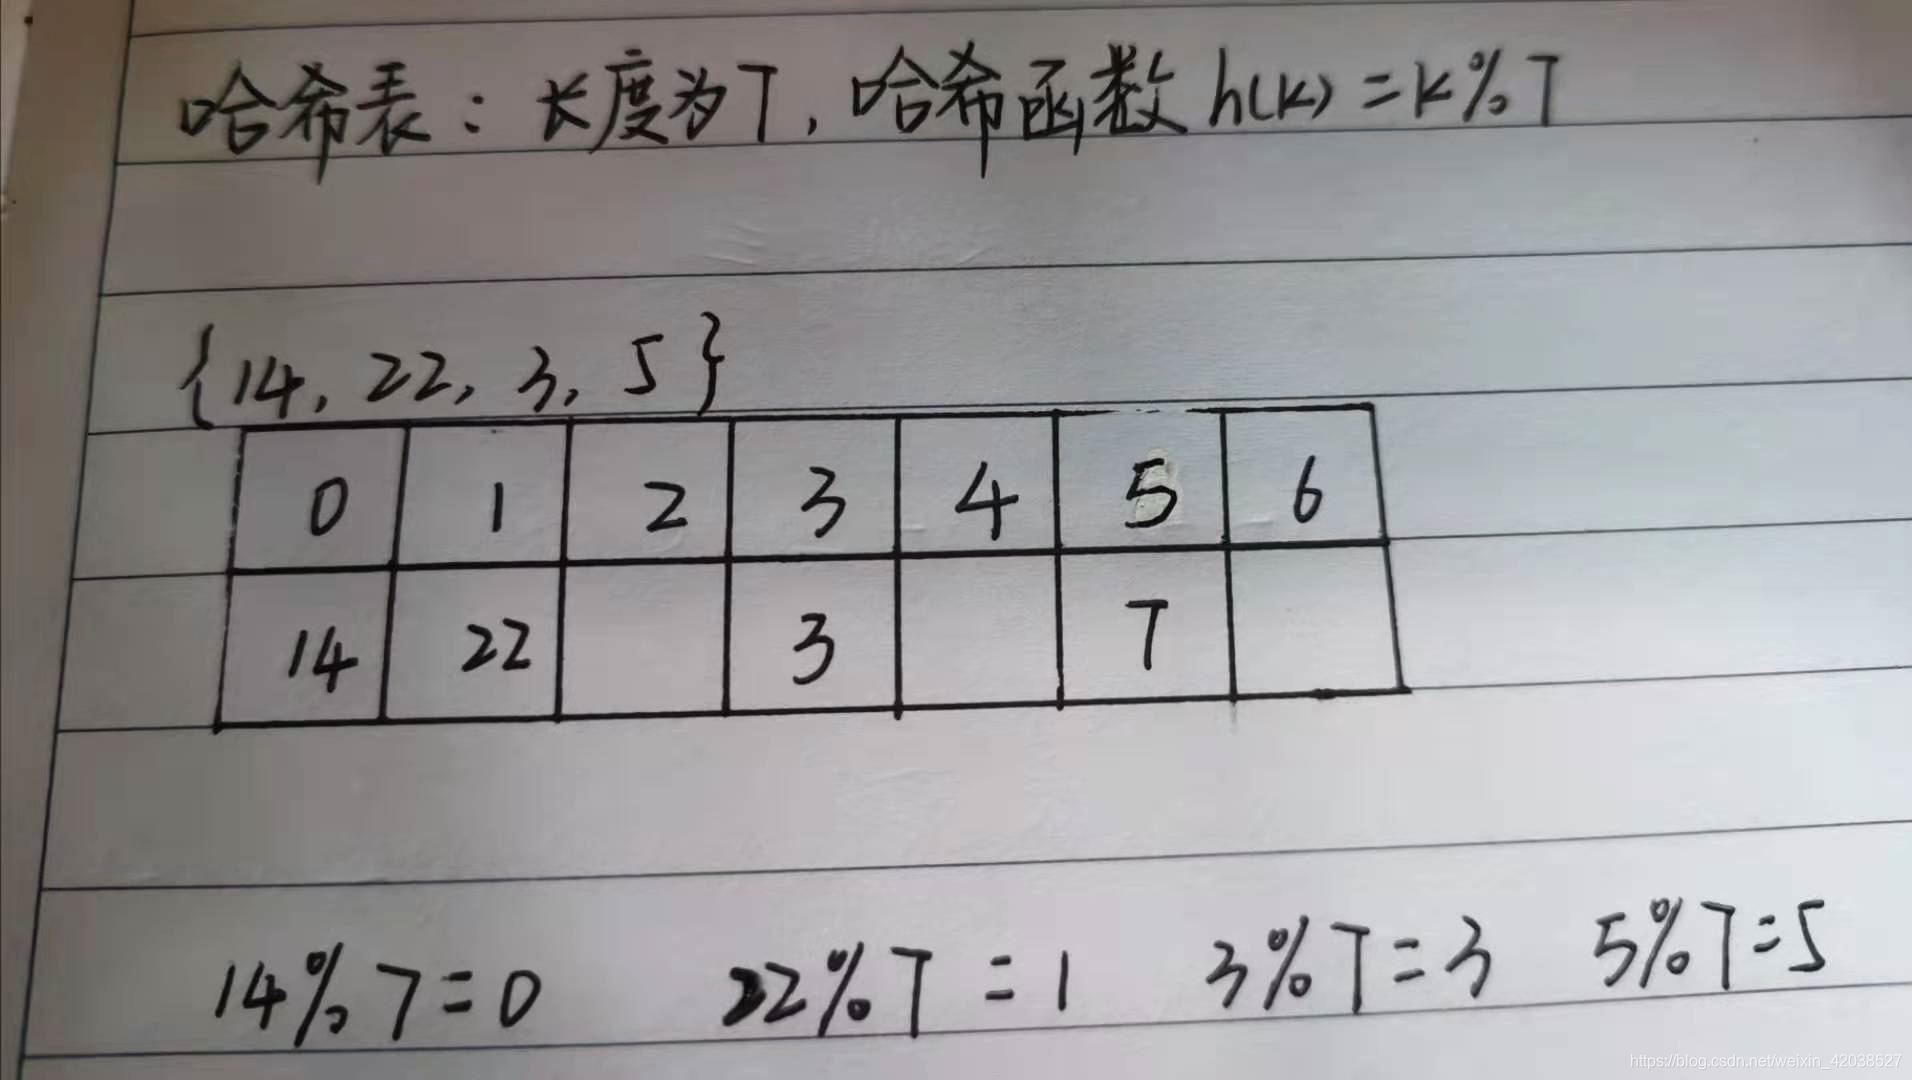 哈希表：长度为7，哈希函数 h(k) = k%7
{14, 22, 3, 5}
0 1 2 3 4 5 6
14 22 3 7
14%7=0 22%7=1 3%7=3 5%7=5
https://blog.csdn.net/weixin_42038527